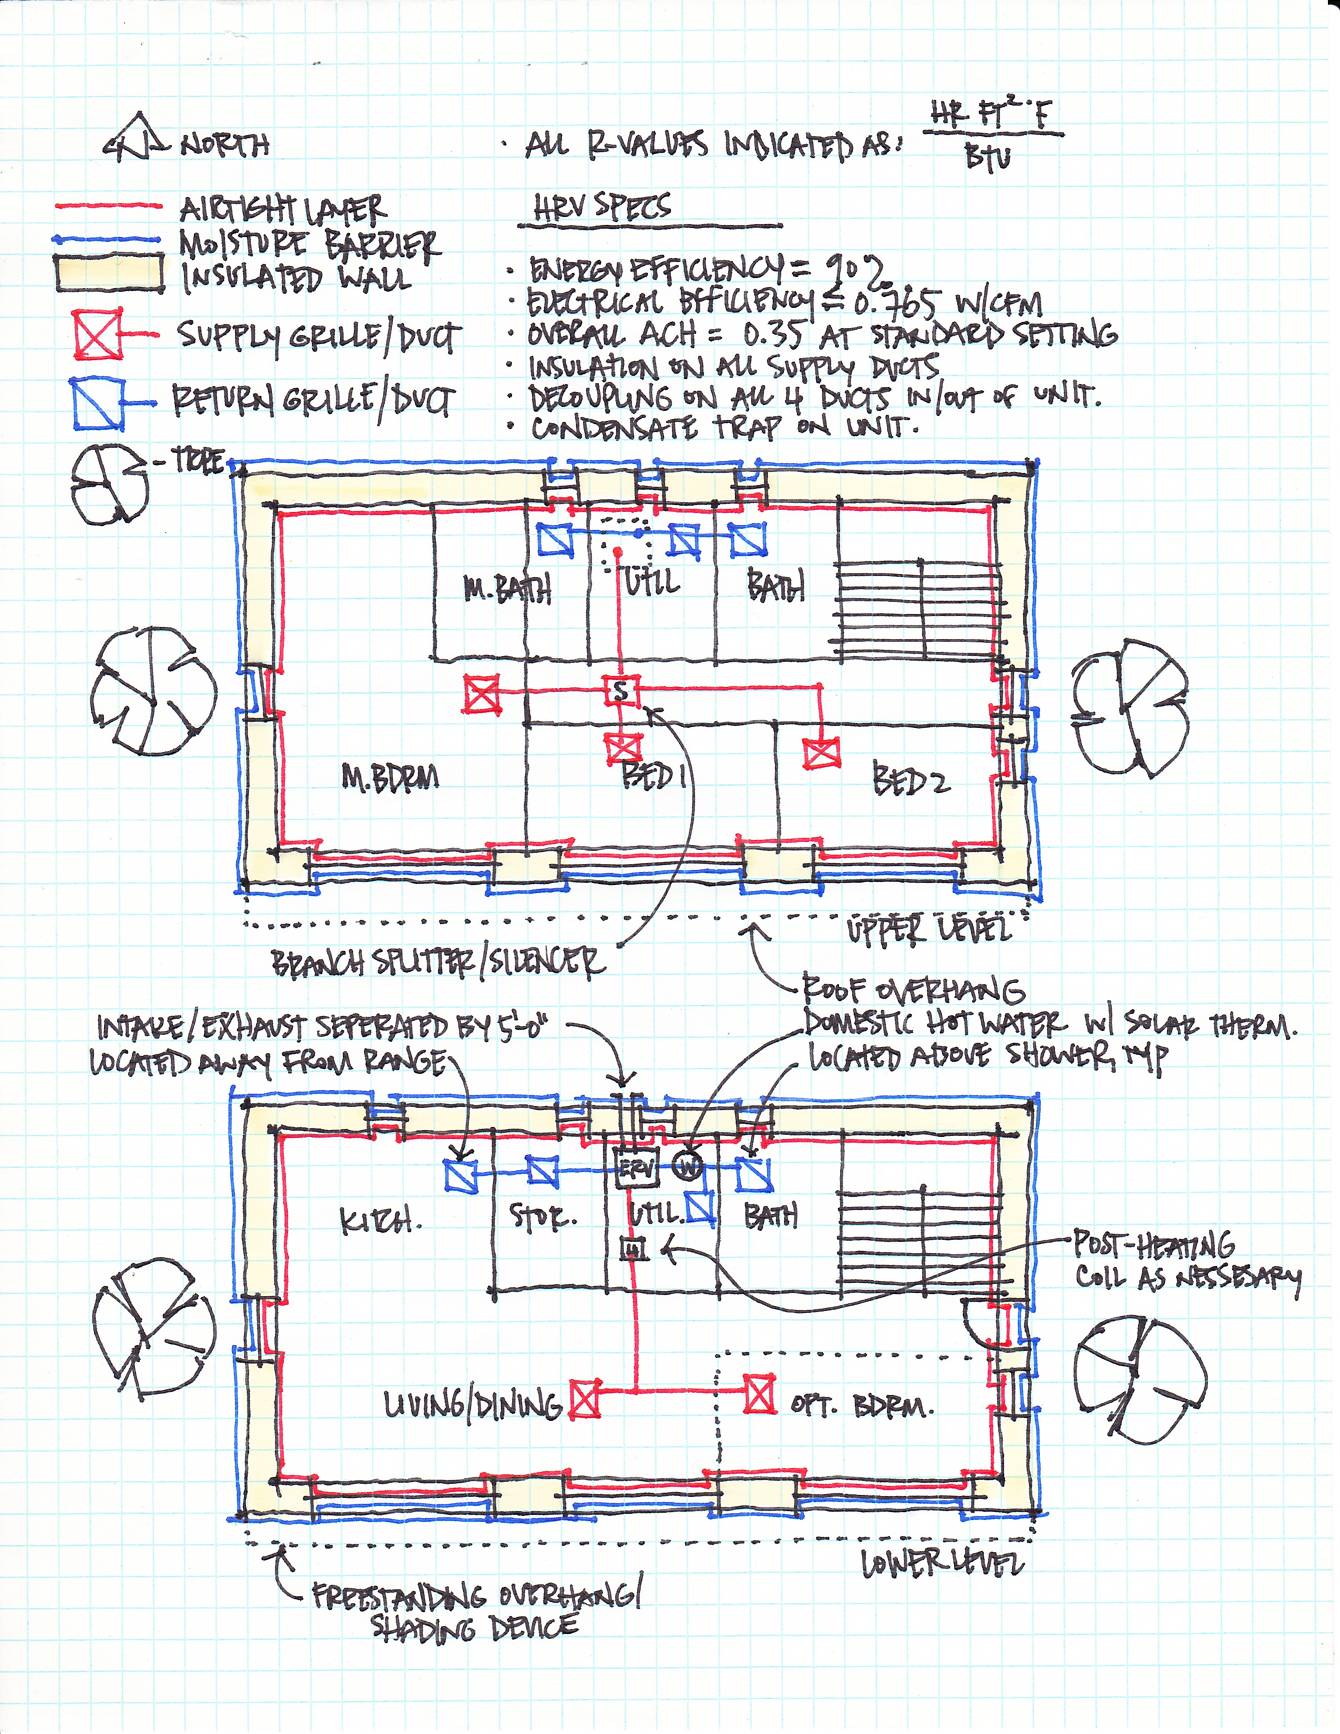 NORTH
· ALL R-VALUES INDICATED AS: HR FT²·°F
BTU
AIRTIGHT LAYER
MOISTURE BARRIER
INSULATED WALL
SUPPLY GRILLE/DUCT
RETURN GRILLE/DUCT
TREE
HRV SPECS
· ENERGY EFFICIENCY = 90%
· ELECTRICAL EFFICIENCY ≤ 0.765 W/CFM
· OVERALL ACH = 0.35 AT STANDARD SETTING
· INSULATION ON ALL SUPPLY DUCTS
· DECOUPLING ON ALL 4 DUCTS IN/OUT OF UNIT.
· CONDENSATE TRAP ON UNIT.
M. BATH
UTIL
BATH
S
M. BDRM
BED 1
BED 2
UPPER LEVEL
BRANCH SPLITTER/SILENCER
ROOF OVERHANG
INTAKE/EXHAUST SEPERATED BY 5'-0"
DOMESTIC HOT WATER W/ SOLAR THERM.
LOCATED AWAY FROM RANGE
LOCATED ABOVE SHOWER, TYP
ERV
W
KITCH.
STOR.
UTIL.
BATH
H
POST-HEATING
COIL AS NESSESARY
LIVING/DINING
OPT. BDRM.
LOWER LEVEL
FREESTANDING OVERHANG/
SHADING DEVICE